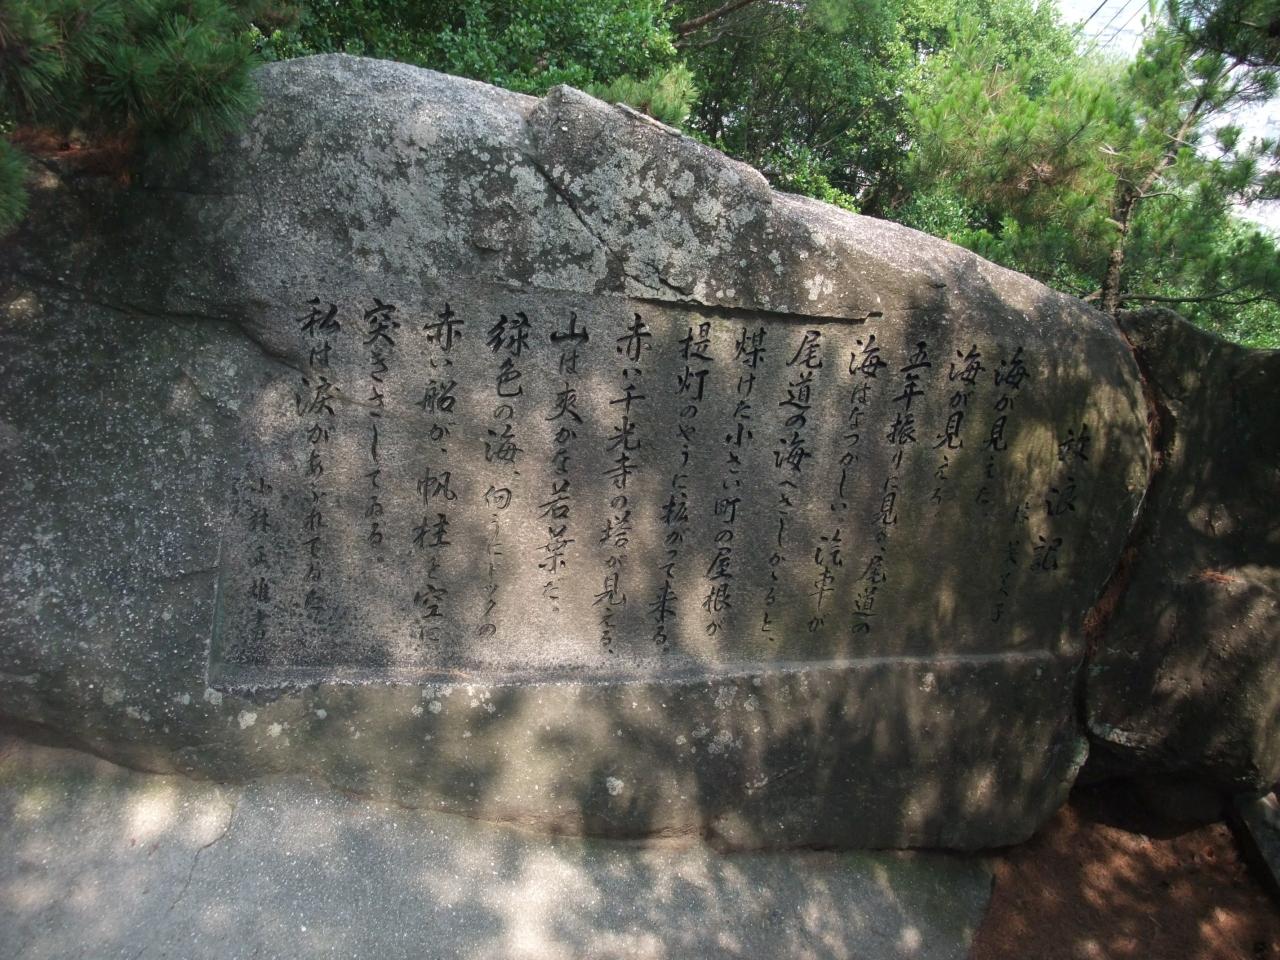 放浪記
林芙美子
海が見えた
海が見える
五年振りに見る、尾道の
海はなつかしい、汽車が
尾道の海へさしかゝると、
煤けた小さい町の屋根が
提灯のやうに、拡がって来る。
赤い千光寺の塔が見える、
山は爽かな若葉だ。
緑色の海、向うにドックの
赤い船が、帆柱を空に
突きさしてゐる。
私は涙があふれてゐた。
小林正雄書